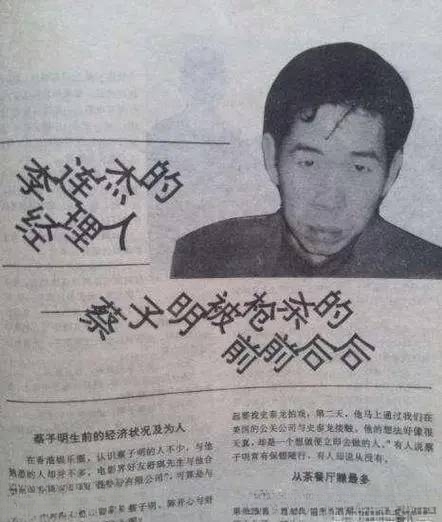 李连杰的
经理人
蔡子明被枪杀的
前前后后
蔡子明生前的经济状况及为人
在香港娱乐圈，认识蔡子明的人不少，与他
熟悉的人却并不多，电影界好友
起要找史泰龙拍戏；第二天，他马上通过我们在
美国的公关公司与史泰龙接触，他的想法好像很
天真，却是一个想做便立即去做的人。”有人说蔡
子明常有保镖随行，有人却说从没有。
从茶餐厅赚最多